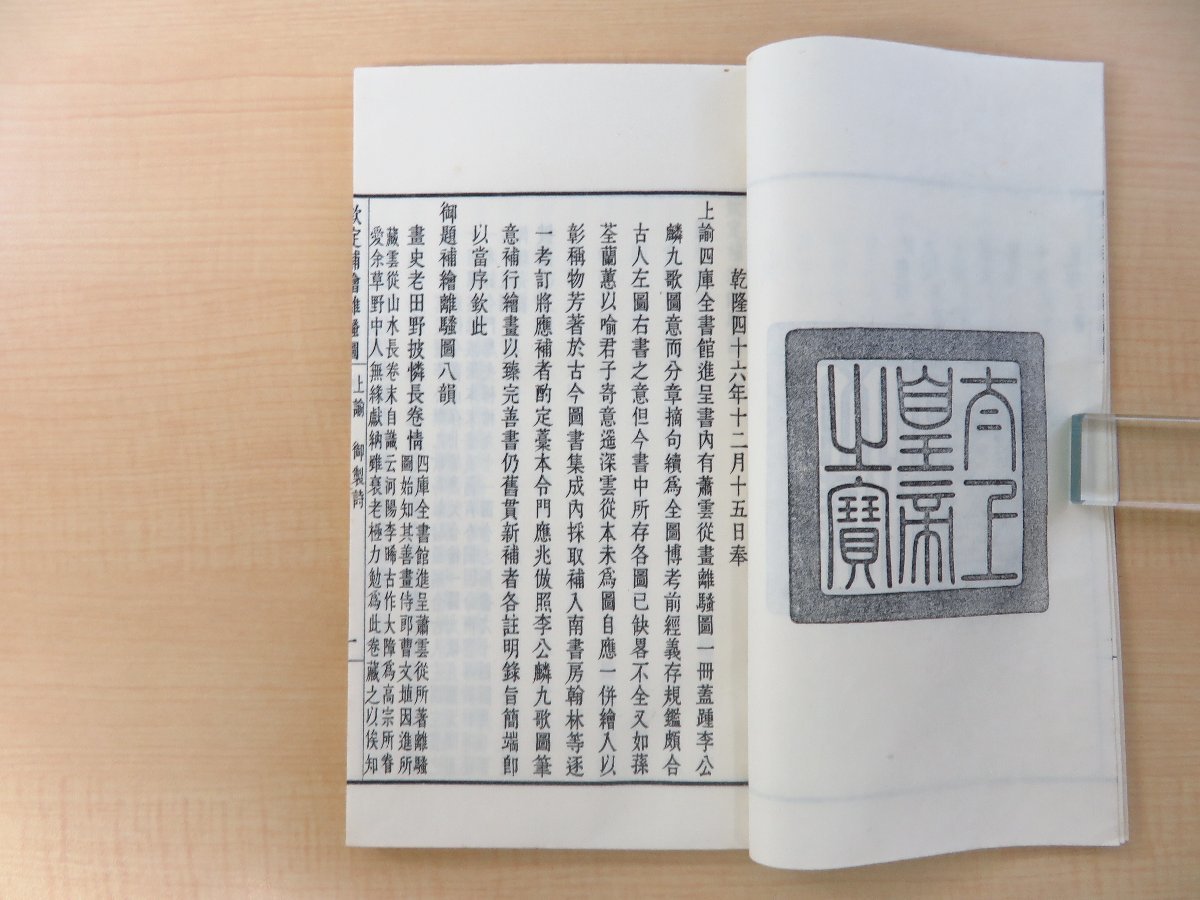 太上
皇帝
之寶
乾隆四十六年十二月十五日奉
上諭四庫全書館進呈書內有蕭雲從畫離騷圖一冊蓋踵李公
麟九歌圖意而分章摘句續為全圖博考前經義存規鑑頗合
古人左圖右書之意但今書中所存各圖已缺畧不全又如蓀
荃蘭蕙以喻君子寄意遥深雲從本未為圖自應一併繪入以
彰稱物芳著於古今圖書集成內採取補入南書房翰林等逐
一考訂將應補者酌定藁本令門應兆倣照李公麟九歌圖筆
意補行繪畫以臻完善書仍舊貫新補者各註明錄旨簡端即
以當序欽此
御題補繪離騷圖八韻
畫史老田野披憐長卷情
四庫全書館進呈蕭雲從所著離騷
圖始知其善畫侍郎曹文埴因進所
藏雲從山水長卷末自識云河陽李晞古作大障為高宗所眷
愛余草野中人無緣獻納雖衰老極力勉為此卷藏之以俟知
欽定補繪離騷圖 上諭 御製詩 一